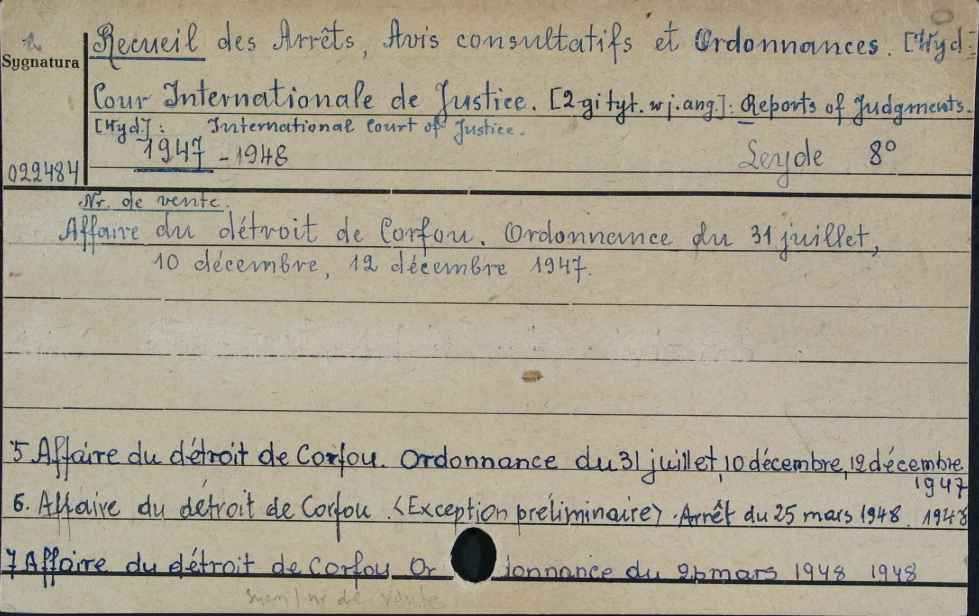 Recueil des Arrêts, Avis consultatifs et Ordonnances. [Wyd.:
Sygnatura
Cour Internationale de Justice. [2-gi tyt. w j. ang.]: Reports of Judgments.
[Wyd.]: International Court of Justice.
1947 - 1948 Leyde 8°
022484
Nr. de vente.
Affaire du détroit de Corfou. Ordonnance du 31 juillet,
10 décembre, 12 décembre 1947.
5 Affaire du détroit de Corfou. Ordonnance du 31 juillet, 10 décembre, 12 décembre
1947
6. Affaire du détroit de Corfou. <Exception préliminaire>. Arrêt du 25 mars 1948. 1948
7 Affaire du détroit de Corfou Or donnance du 26 mars 1948 1948
nr de vente